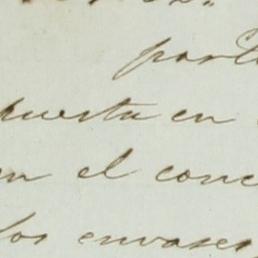 part
puesta en
en el conc
los envases